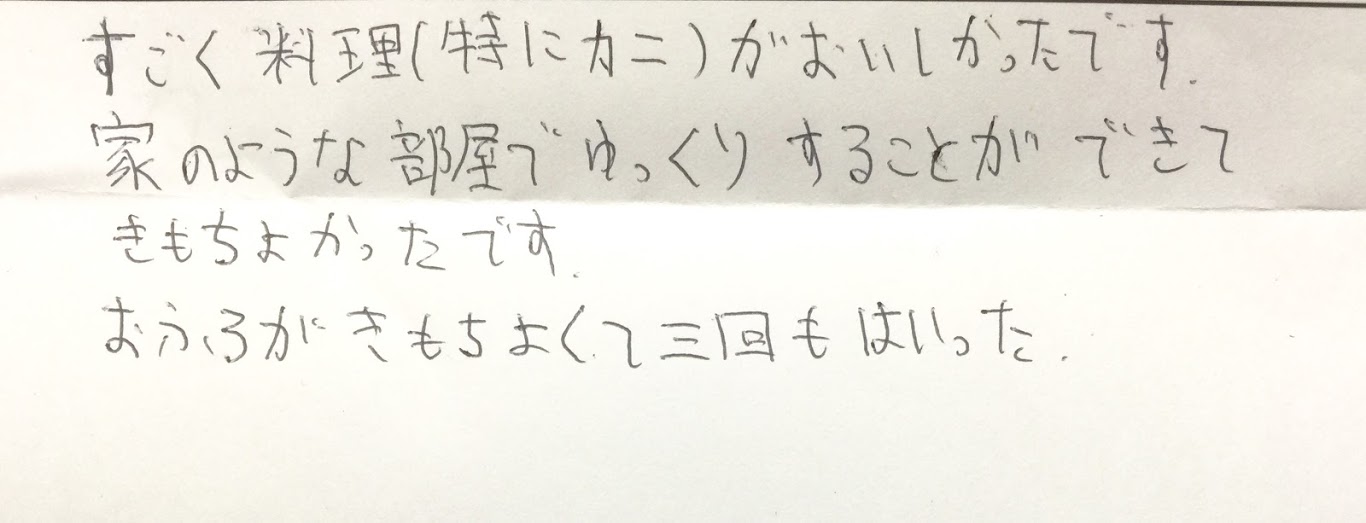 すごく料理(特にカニ)がおいしかったです.
家のような部屋でゆっくりすることができて
きもちよかったです.
おふろがきもちよくて三回もはいった.